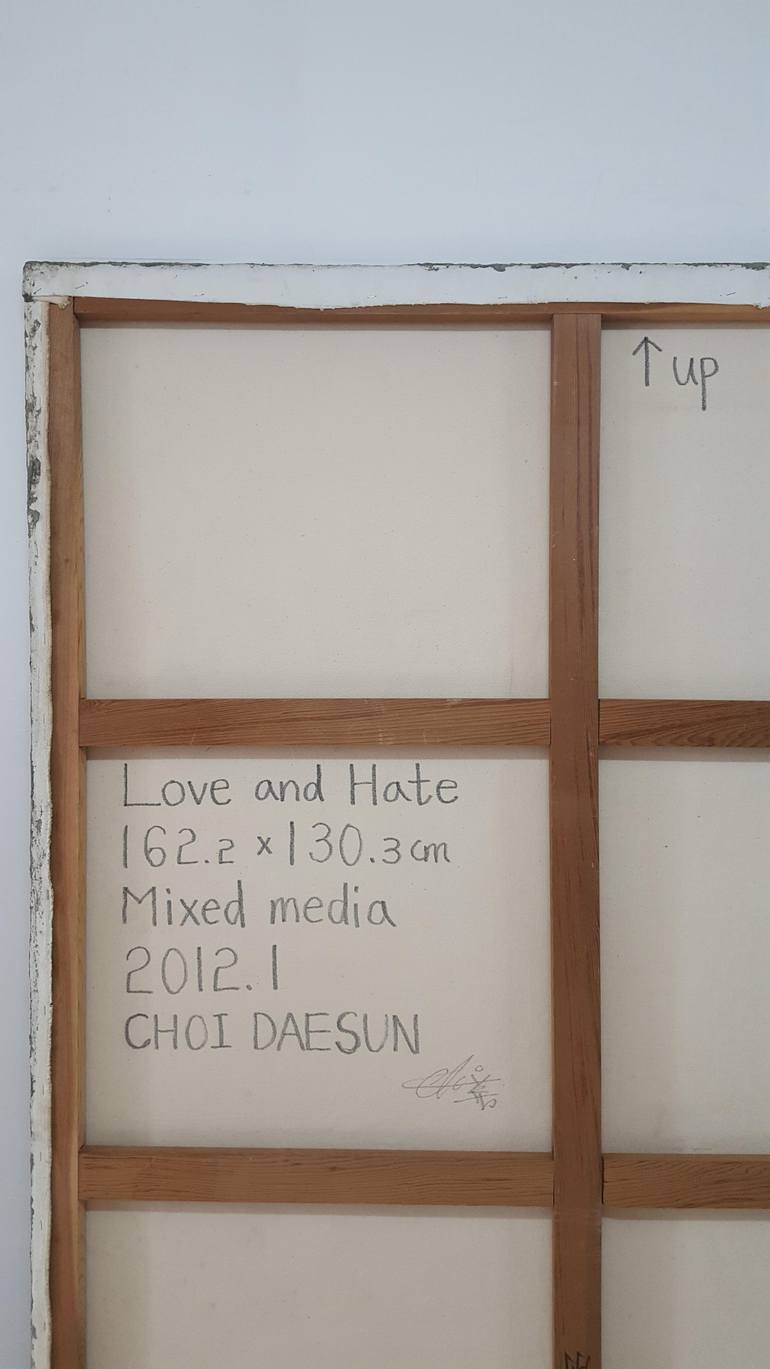 ↑ up
Love and Hate
162.2 x 130.3 cm
Mixed media
2012.1
CHOI DAESUN